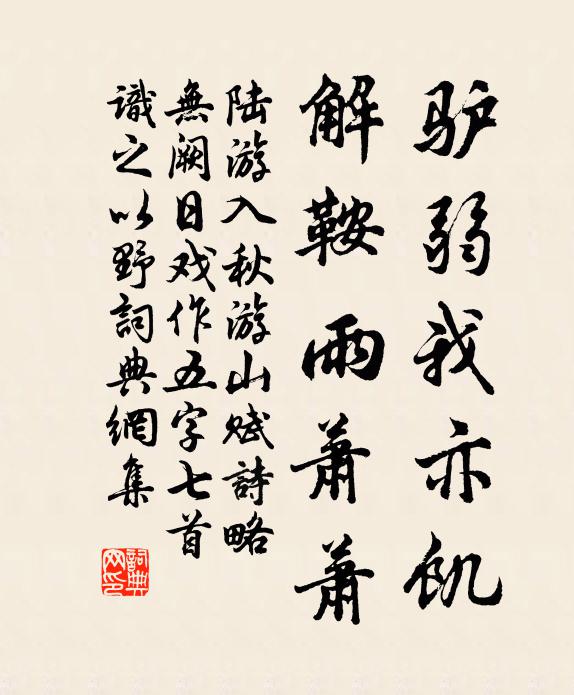 驴弱我亦飢
解鞍雨萧萧
陆游入秋游山赋詩略
無阙日戏作五字七首
識之以野詞典網集
詞典网印